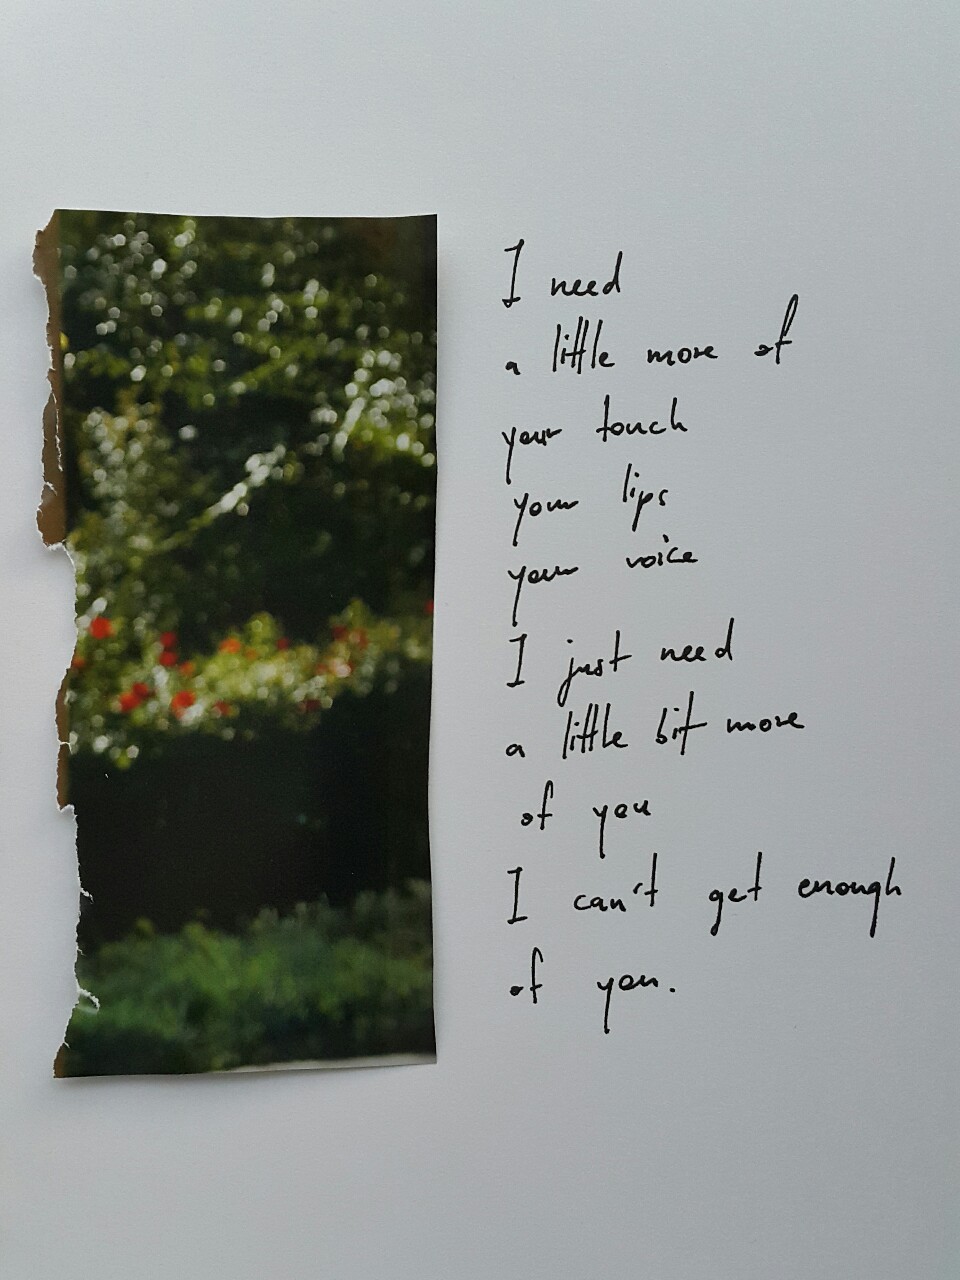 I need
a little more of
your touch
your lips
your voice
I just need
a little bit more
of you
I can't get enough
of you.